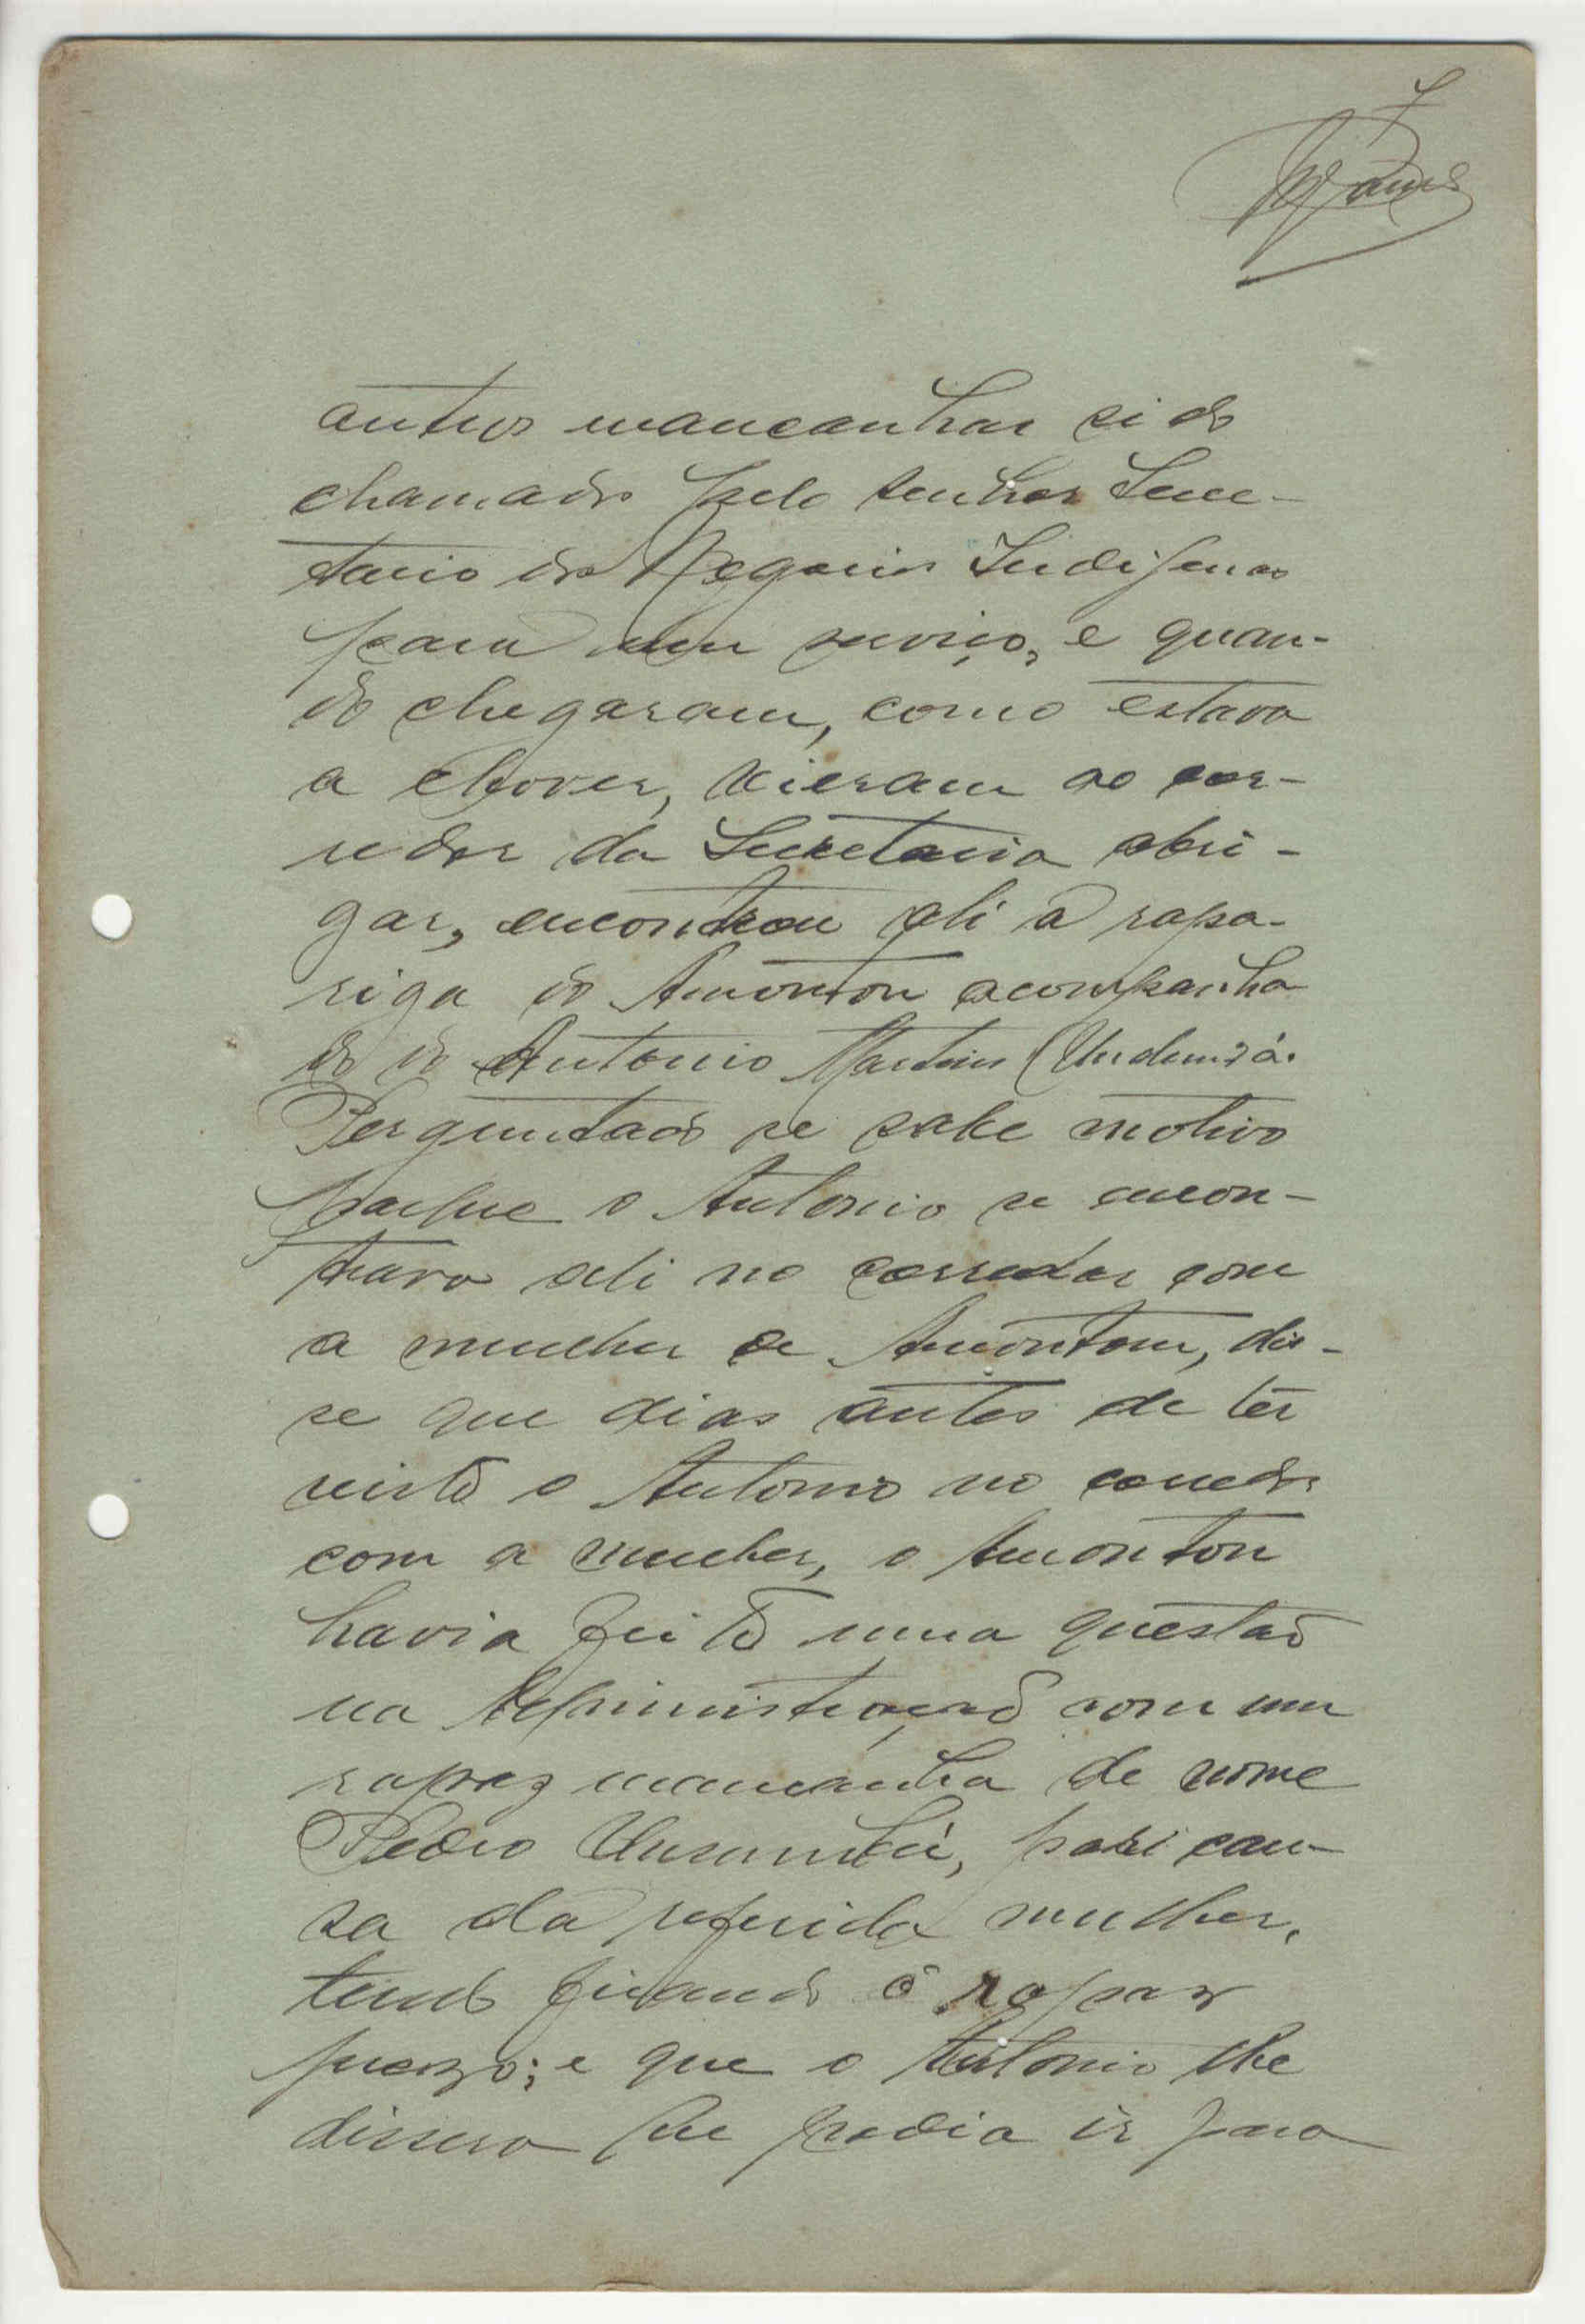 outros mancanhas sido
chamado pelo senhor Secre-
tario dos Negocios Indigenas
para um serviço, e quan-
do chegaram, como estava
a chover, vieram ao cor-
redor da Secretaria abri-
gar, encontrou ali a rapa-
riga do Amonton acompanha
do do Antonio Martins
Perguntado se sabe motivo
porque o Antonio se encon-
trava ali no corredor com
a mulher de Amonton, dis-
se que dias antes de ter
visto o Antonio no corredor
com a mulher, o Amonton
havia feito uma questão
na Administração com um
rapaz mancanha de nome
Pedro por cau-
sa da referida mulher,
tendo ficando o rapaz
prezo; e que o Antonio lhe
dissera que podia ir para